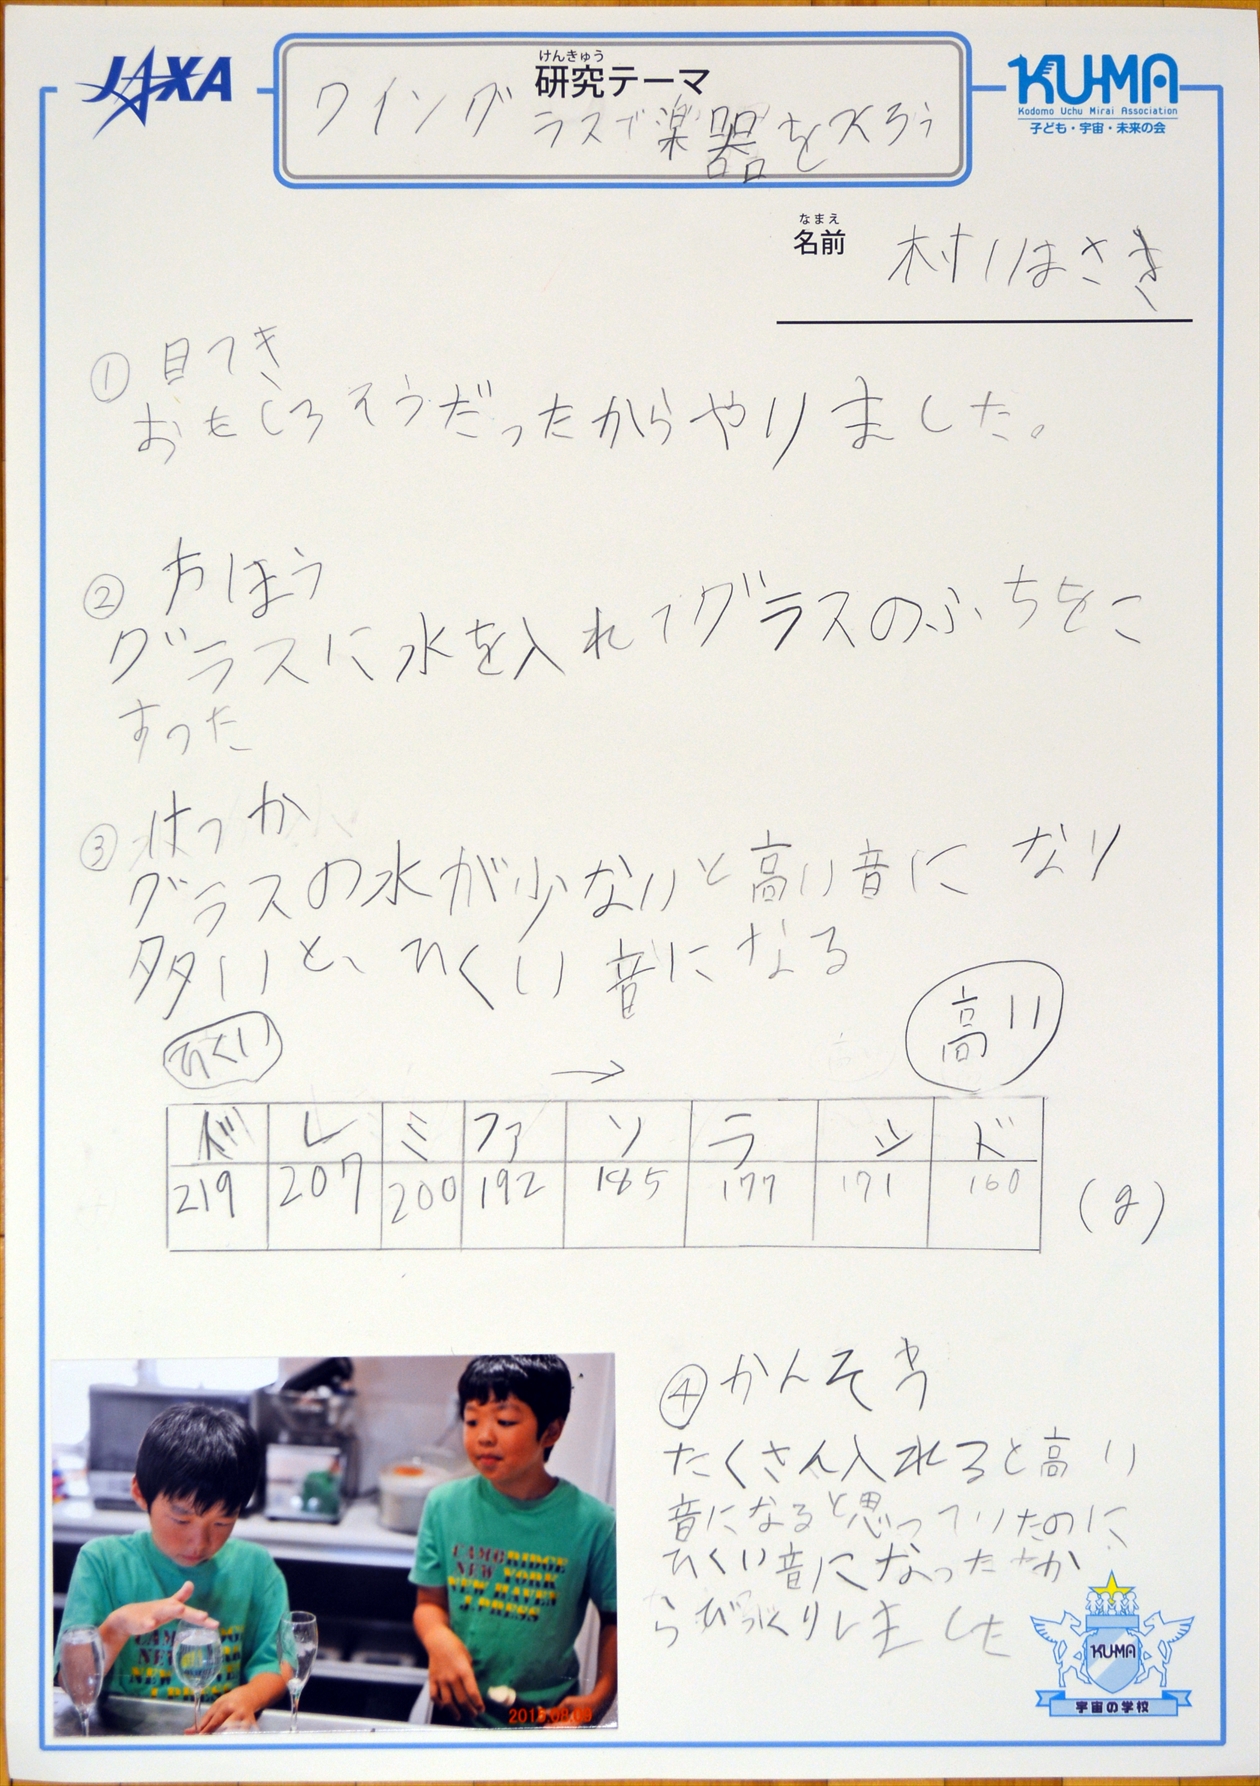 JAXA
けんきゅう
研究テーマ
ワイングラスで楽器をつくろう
KU-MA
Kodomo Uchu Mirai Association
子ども・宇宙・未来の会
なまえ
名前
① 目てき
おもしろそうだったからやりました。
② 方ほう
グラスに水を入れてグラスのふちをこ
すった
③ けっか
グラスの水が少ないと高い音になり
多いと、ひくい音になる
ひくい → 高い
ド レ ミ ファ ソ ラ シ ド
219 207 200 192 185 177 171 160 (g)
④ かんそう
たくさん入れると高い
音になると思っていたのに
ひくい音になったか
らびっくりしました
CAMBRIDGE
NEW YORK
NEW HAVEN
KU-MA
宇宙の学校